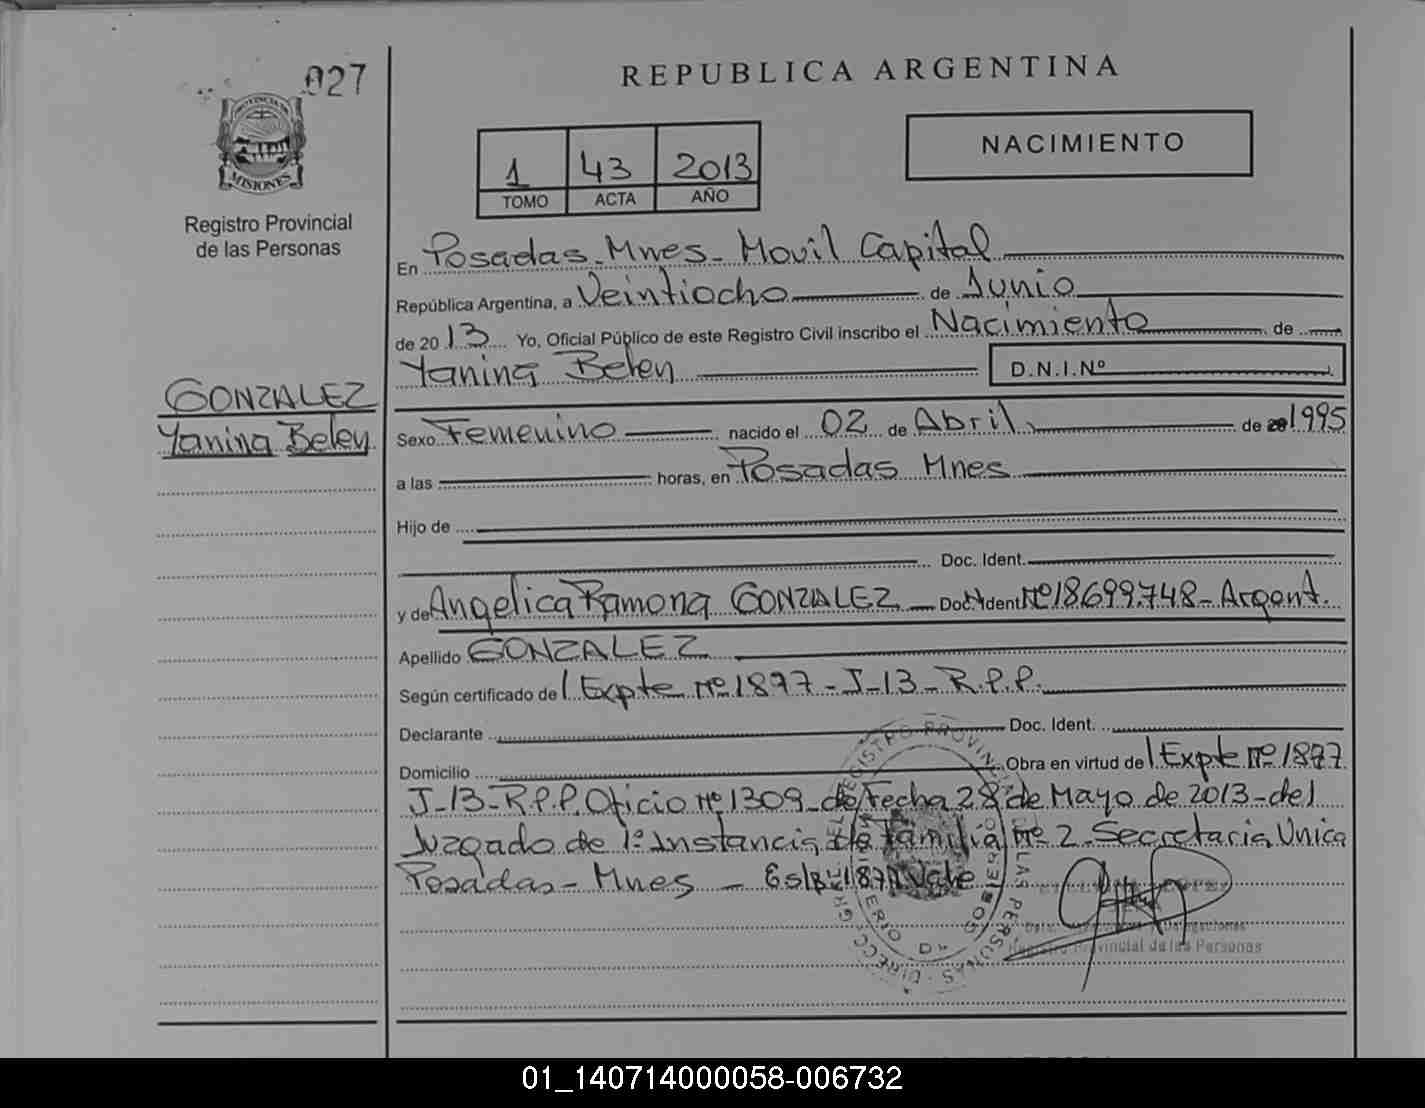 027
PROVINCIA DE
MISIONES
Registro Provincial
de las Personas
GONZALEZ
Yanina Belen
REPUBLICA ARGENTINA
1 43 2013
TOMO ACTA AÑO
NACIMIENTO
En Posadas - Mnes - Movil Capital
República Argentina, a Veintiocho de Junio
de 2013 Yo, Oficial Público de este Registro Civil inscribo el Nacimiento de
Yanina Belen D.N.I.Nº
Sexo Femenino nacido el 02 de Abril de 1995
a las horas, en Posadas Mnes
Hijo de
Doc. Ident.
y de Angelica Ramona GONZALEZ Doc. Ident. Nº 18699.748 - Argent.
Apellido GONZALEZ
Según certificado de l Expte Nº 1877 - J - 13 - R.P.P.
Declarante Doc. Ident.
Domicilio Obra en virtud del Expte Nº 1877
J - 13 - R.P.P. Oficio Nº 1309 - de Fecha 28 de Mayo de 2013 - del
Juzgado de 1º Instancia de Familia Nº 2 - Secretaria Unica
Posadas - Mnes - 1877 Vale
Registro Provincial de las Personas
01_140714000058-006732